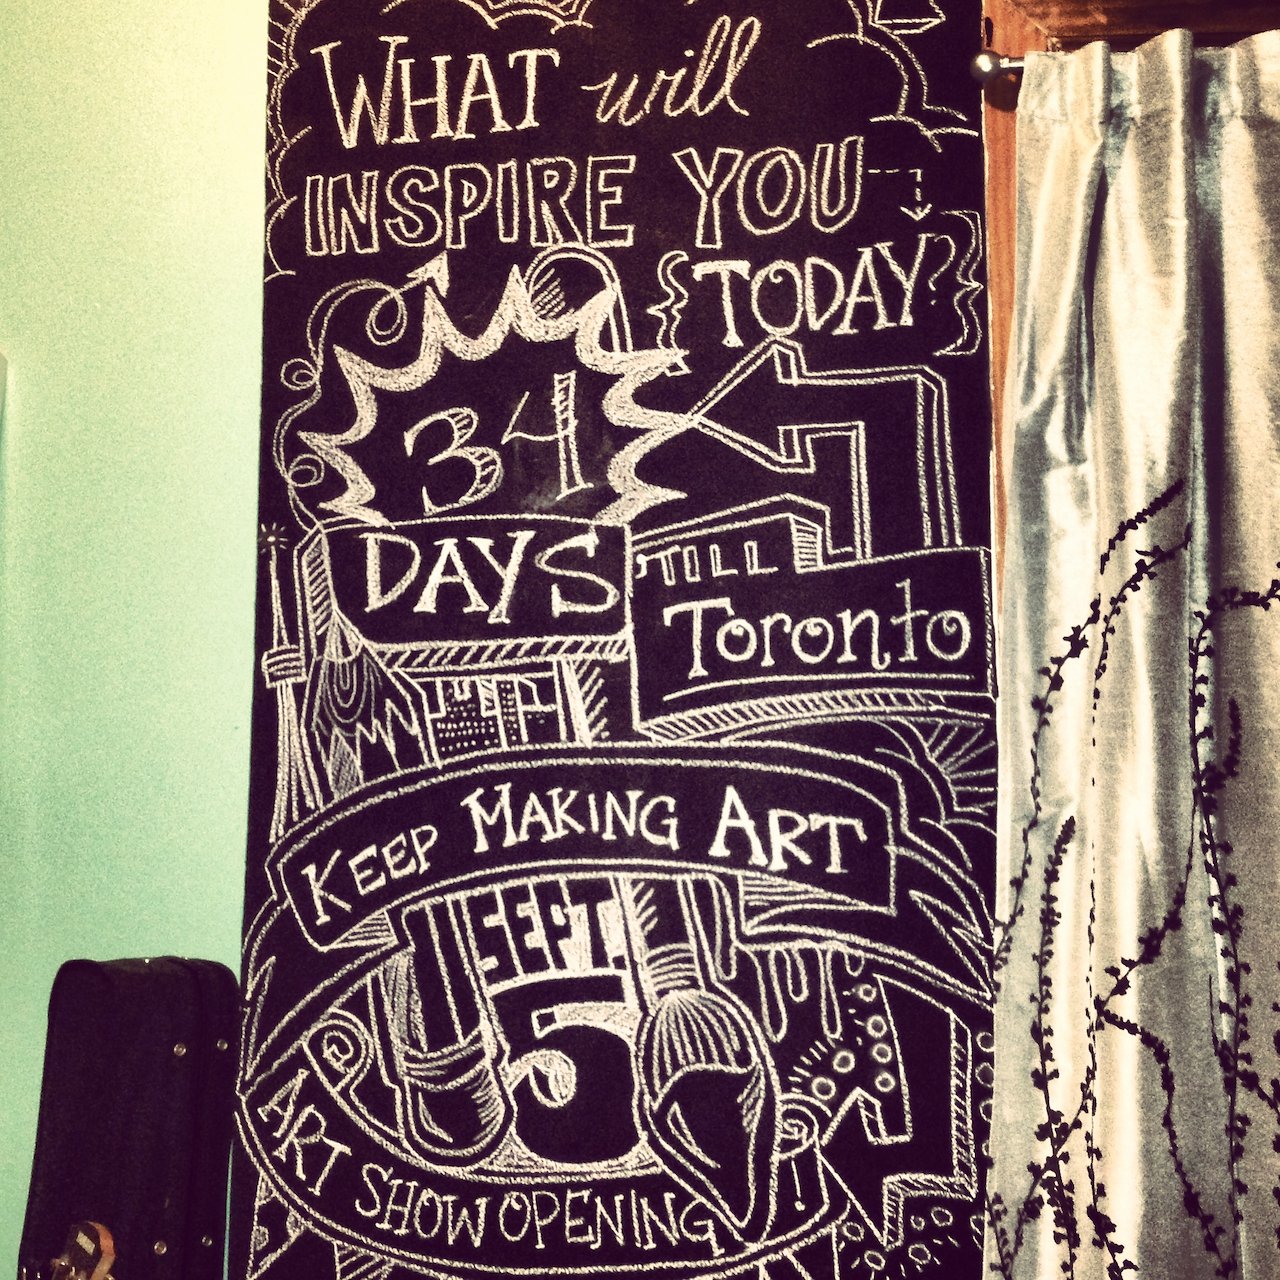 WHAT will
INSPIRE YOU
TODAY?
34
DAYS
'TILL
Toronto
KEEP MAKING ART
SEPT.
5
ART SHOW OPENING